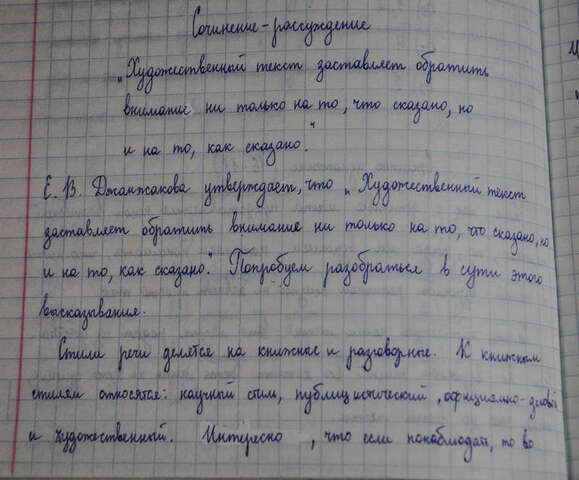 Сочинение-рассуждение
„Художественный текст заставляет обратить
внимание ни только на то, что сказано, но
и на то, как сказано."
Е. В. Джанжакова утверждает, что „Художественный текст
заставляет обратить внимание ни только на то, что сказано, но
и на то, как сказано." Попробуем разобраться в сути этого
высказывания.
Стили речи делятся на книжные и разговорные. К книжным
стилям относятся: научный стиль, публицистический, официально-деловой
и художественный. Интересно , что если понаблюдать, то во